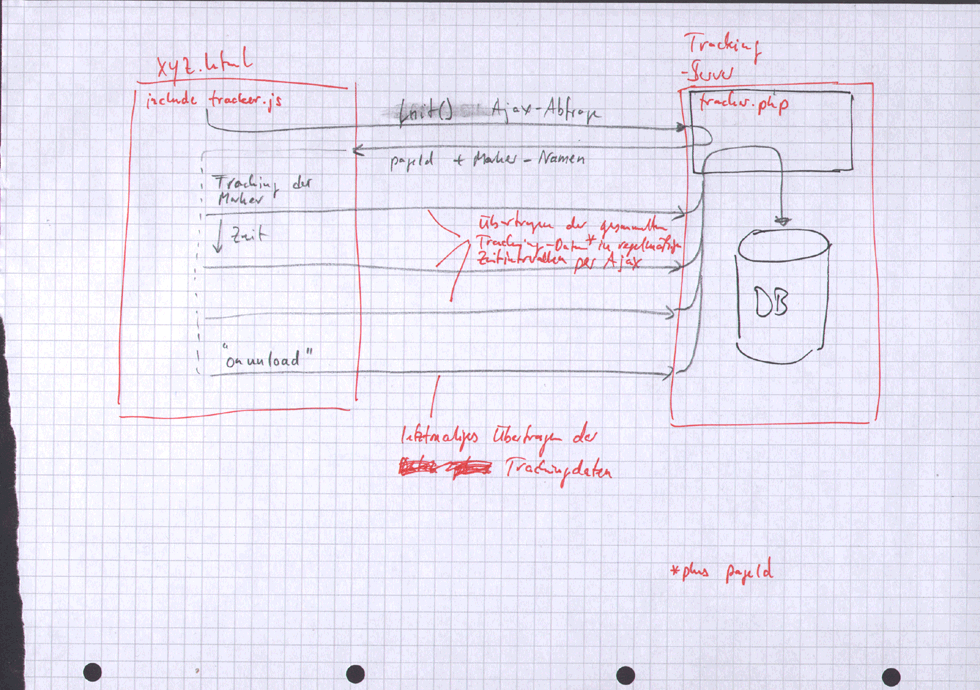 Tracking
-Server
xyz.html
include tracker.js
tracker.php
init() Ajax-Abfrage
pageId + Marker-Namen
Tracking der
Marker
Zeit
Übertragen der gesammelten
Tracking-Daten* in regelmäßigen
Zeitintervallen per Ajax
DB
"onunload"
letztmaliges Übertragen der
Trackingdaten
*plus pageId